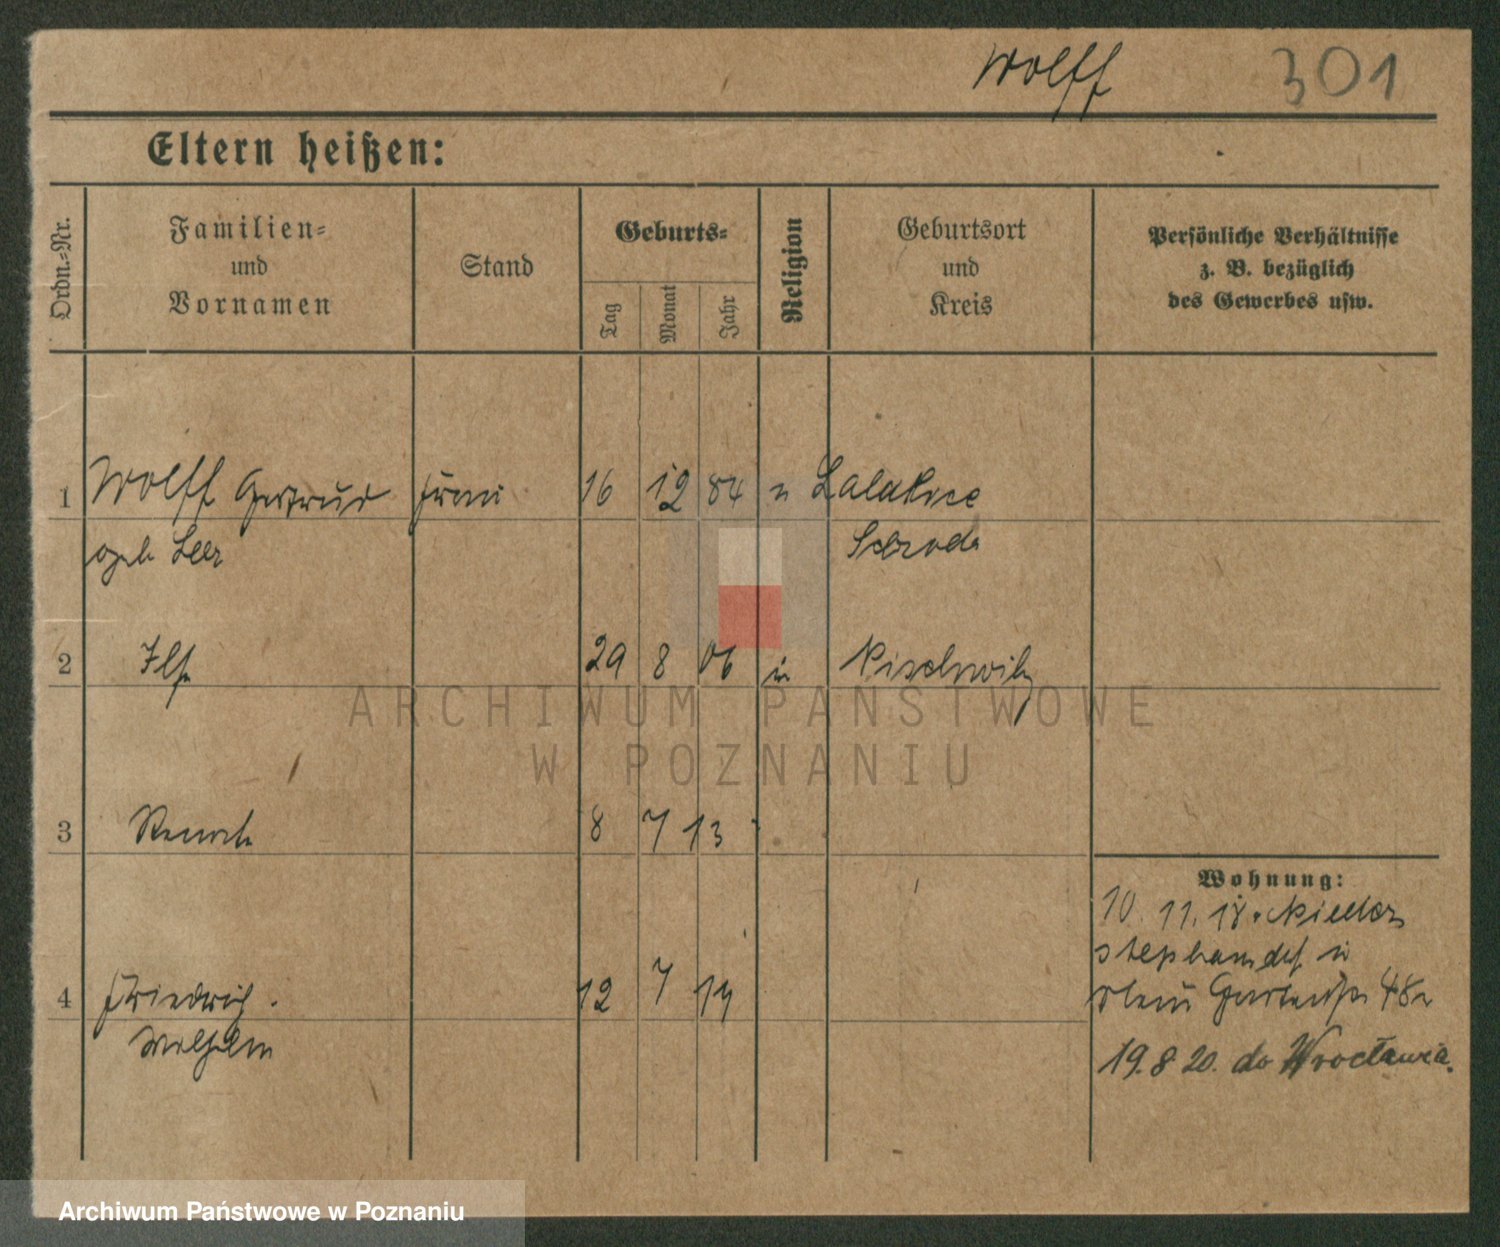 Wolff 301
Eltern heißen:
Ordn.-Nr.
Familien-
und
Vornamen
Stand
Geburts-
Tag
Monat
Jahr
Religion
Geburtsort
und
Kreis
Persönliche Verhältnisse
z. B. bezüglich
des Gewerbes usw.
1 Wolff Gertrud Frau 16 12 84
geb Schroda
2 Ilse 29 8 06
3 Renate 8 7 13
4 Friedrich 12 7 14
Wilhelm
Wohnung:
10 11. 18. Nieder
stephansdf
48
19. 8 20. do Wrocławia.
ARCHIWUM PAŃSTWOWE
W POZNANIU
Archiwum Państwowe w Poznaniu